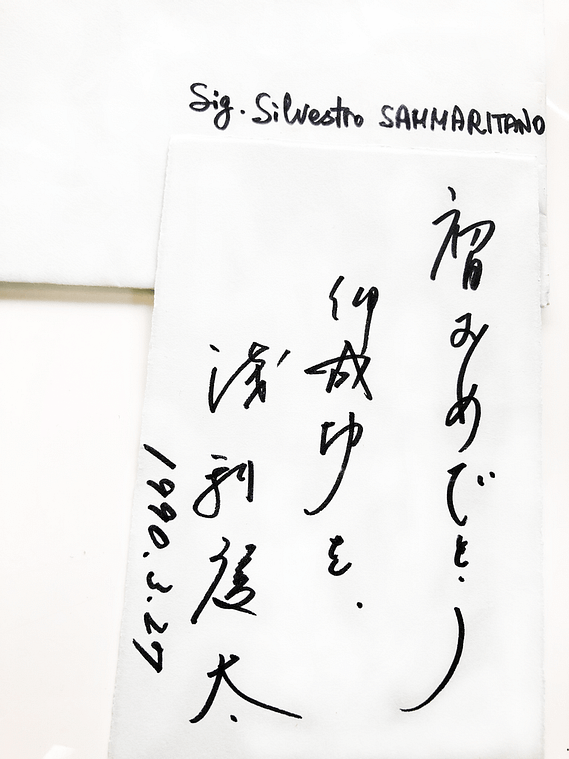 Sig. Silvestro SAMMARITANO
初日おめでとう
御成功を.
浅利慶太
1990.3.27